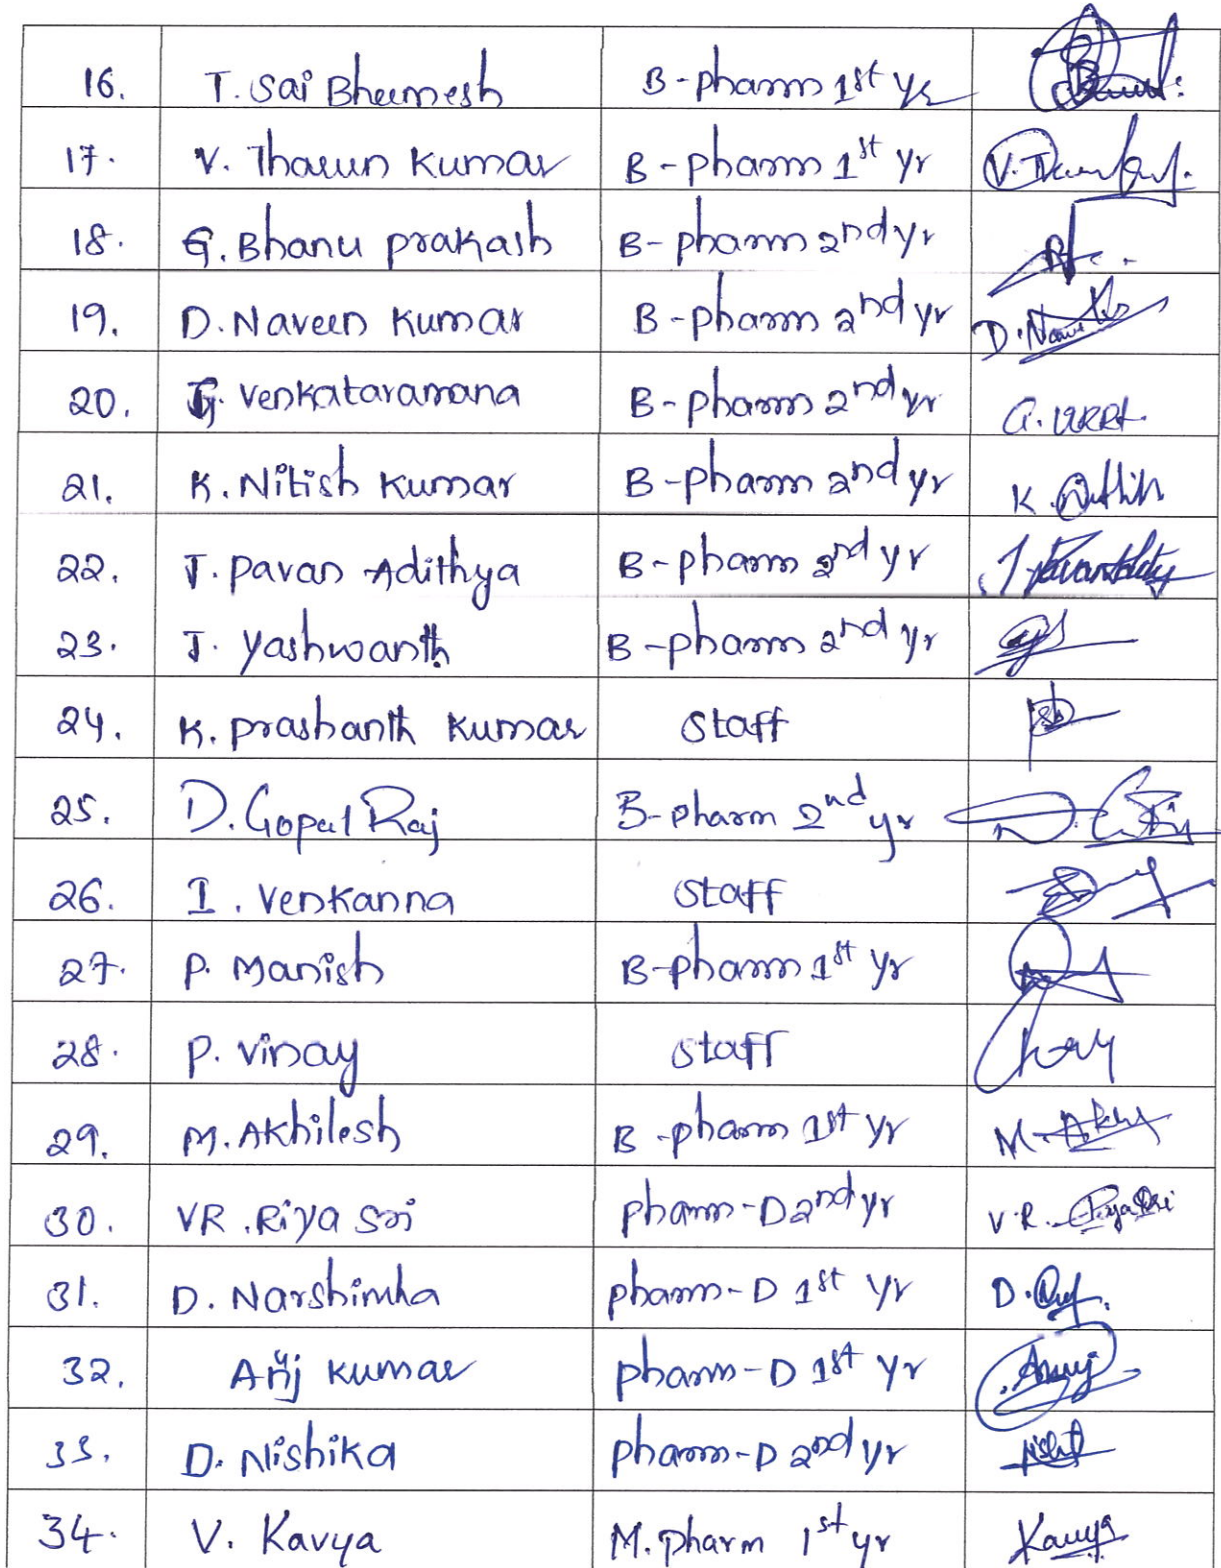 16. T. Sai Bheemesh B-pharm 1st yr
17. V. Tharun Kumar B-pharm 1st yr V. Tharun
18. G. Bhanu prakash B-pharm 2nd yr
19. D. Naveen Kumar B-pharm 2nd yr D. Naveen
20. G. Venkataramana B-pharm 2nd yr
21. K. Nitish Kumar B-pharm 2nd yr K. Nithish
22. J. Pavan Adithya B-pharm 2nd yr
23. J. Yashwanth B-pharm 2nd yr
24. K. Prashanth Kumar Staff
25. D. Gopal Raj B-pharm 2nd yr
26. I. Venkanna Staff
27. P. Manish B-pharm 1st yr
28. P. Vinay Staff
29. M. Akhilesh B-pharm 1st yr M. Akhil
30. VR. Riya Sri pharm-D 2nd yr V.R. Riya Sri
31. D. Narshimha pharm-D 1st yr
32. Anuj Kumar pharm-D 1st yr Anuj
33. D. Nishika pharm-D 2nd yr
34. V. Kavya M.pharm 1st yr Kavya